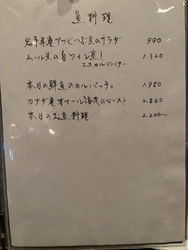 魚料理
岩手県産アワビとつぶ貝のサラダ 990
ムール貝の白ワイン蒸し 1.320
エスカルゴバター
本日の鮮魚のカルパッチョ 1.980
カナダ産オマール海老のロースト 2.860
本日のお魚料理 2.200〜